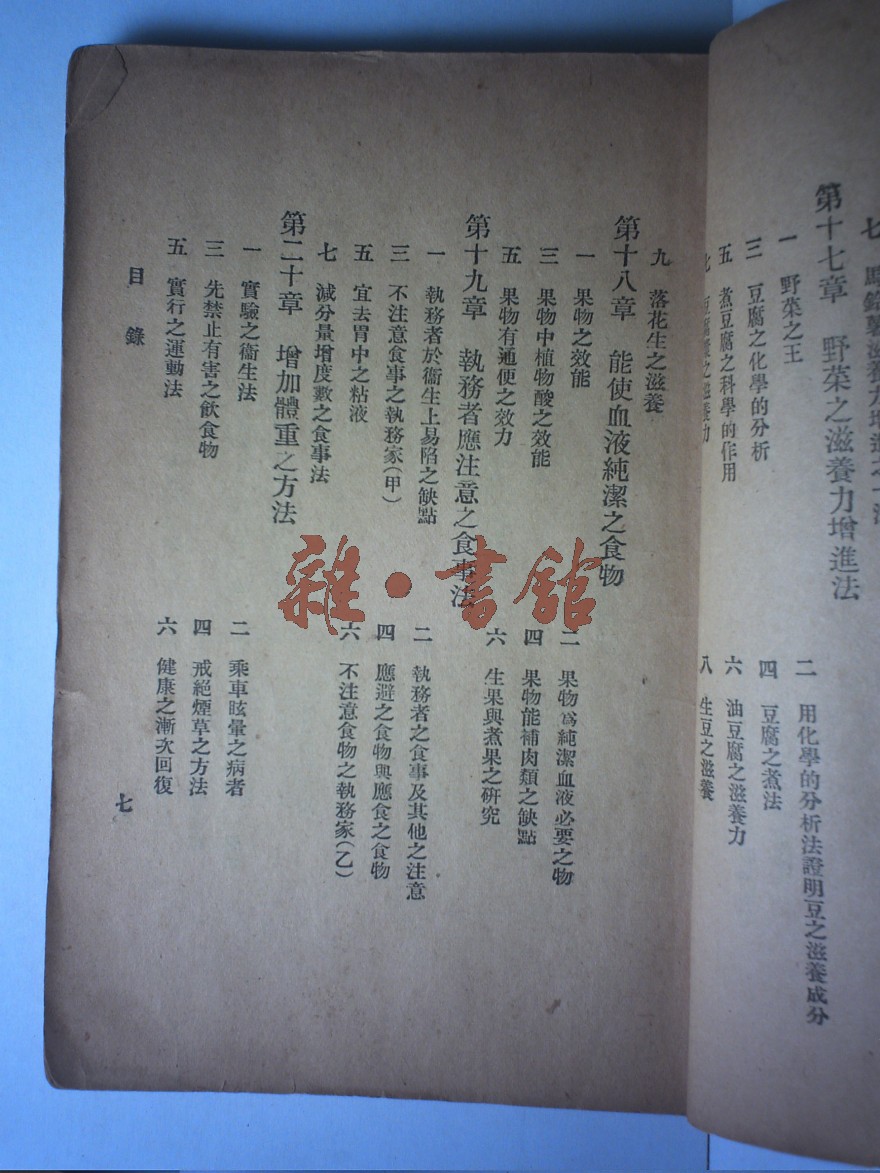 第十七章　野菜之滋養力增進法
一　野菜之王
二　用化學的分析法證明豆之滋養成分
三　豆腐之化學的分析
四　豆腐之煮法
五　煮豆腐之科學的作用
六　油豆腐之滋養力
八　生豆之滋養
九　落花生之滋養
第十八章　能使血液純潔之食物
一　果物之效能
二　果物爲純潔血液必要之物
三　果物中植物酸之效能
四　果物能補肉類之缺點
五　果物有通便之效力
六　生果與煮果之研究
第十九章　執務者應注意之食事法
一　執務者於衞生上易陷之缺點
二　執務者之食事及其他之注意
三　不注意食事之執務家（甲）
四　應避之食物與應食之食物
五　宜去胃中之粘液
六　不注意食物之執務家（乙）
七　減分量增度數之食事法
第二十章　增加體重之方法
一　實驗之衞生法
二　乘車眩暈之病者
三　先禁止有害之飲食物
四　戒絕煙草之方法
五　實行之運動法
六　健康之漸次回復
目錄
七
雜·書館